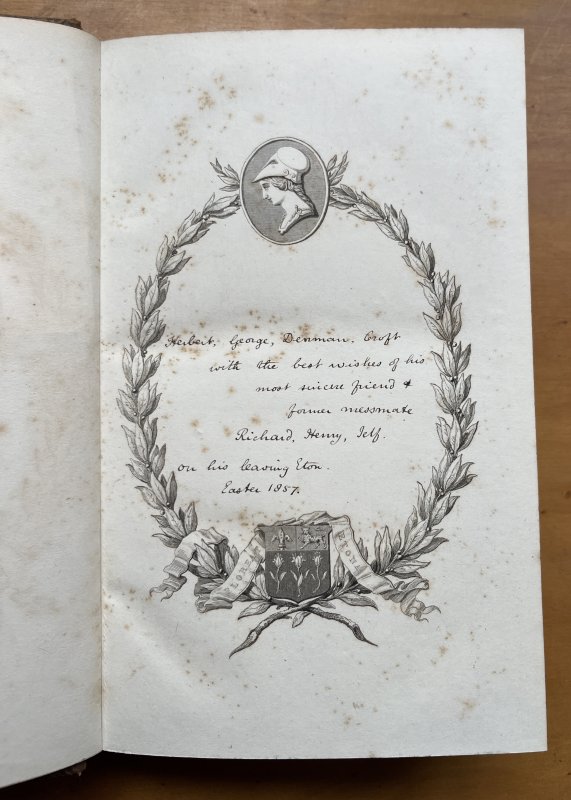 Herbert, George, Denman, Croft
with the best wishes of his
most sincere friend &
former messmate
Richard, Henry, Jelf.
on his leaving Eton.
Easter 1857.
FLOREAT ETONA